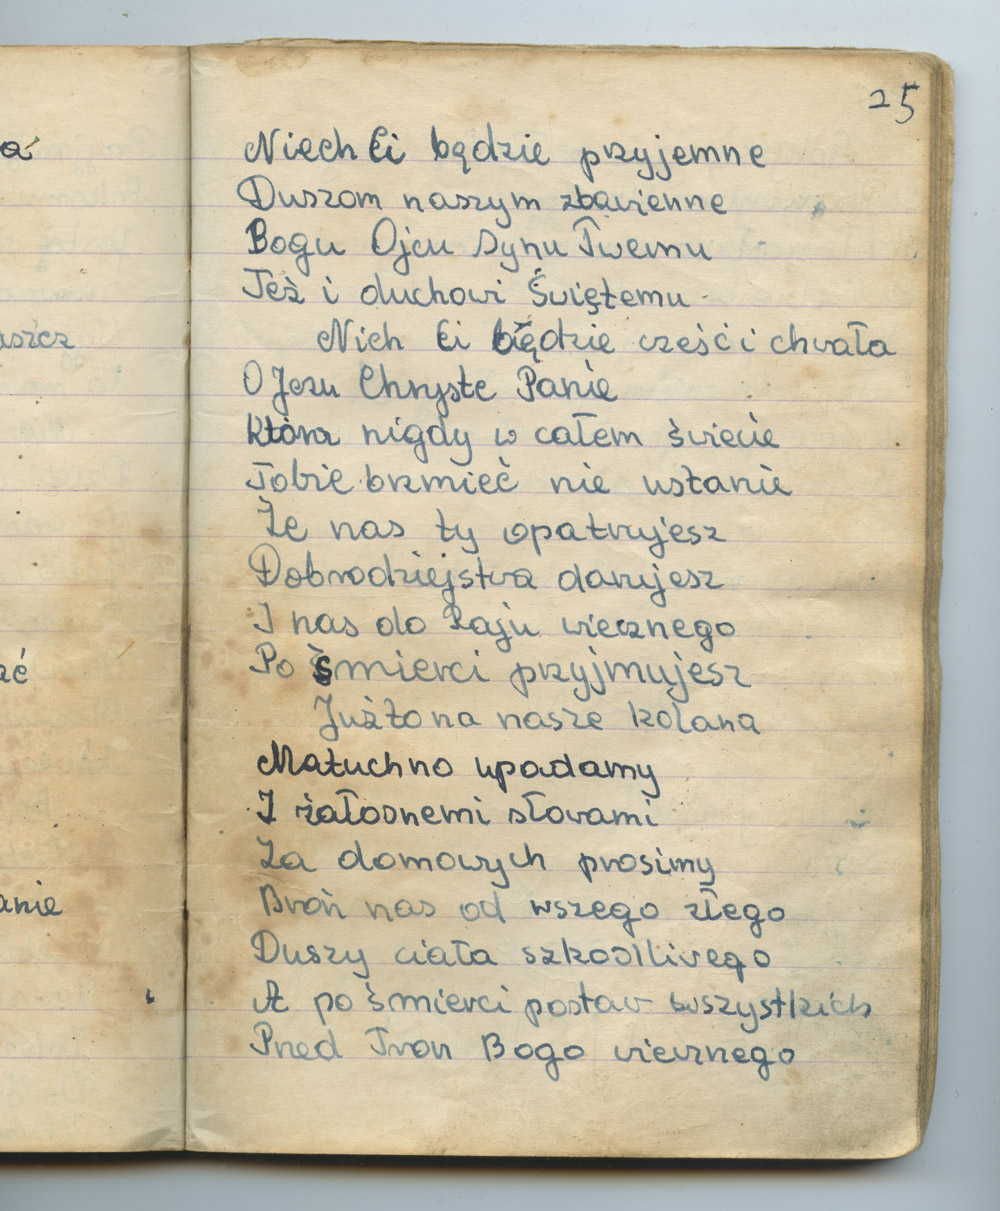 25
a
Niech Ci będzie przyjemne
Duszom naszym zbawienne
Bogu Ojcu Synu Twemu
Też i duchowi Świętemu
aszcz
Nich Ci będzie cześć i chwała
O Jezu Chryste Panie
która nigdy w całem świecie
Tobie brzmieć nie ustanie
Że nas ty opatrujesz
Dobrodziejstwa darujesz
I nas do Raju wiecznego
zć
Po śmierci przyjmujesz
Już to na nasze kolana
Matuchno upadamy
I żałosnemi słowami
Za domowych prosimy
anie
Broń nas od wszego złego
Duszy ciała szkodliwego
A po śmierci postaw wszystkich
Pned Tron Bogo wiecznego